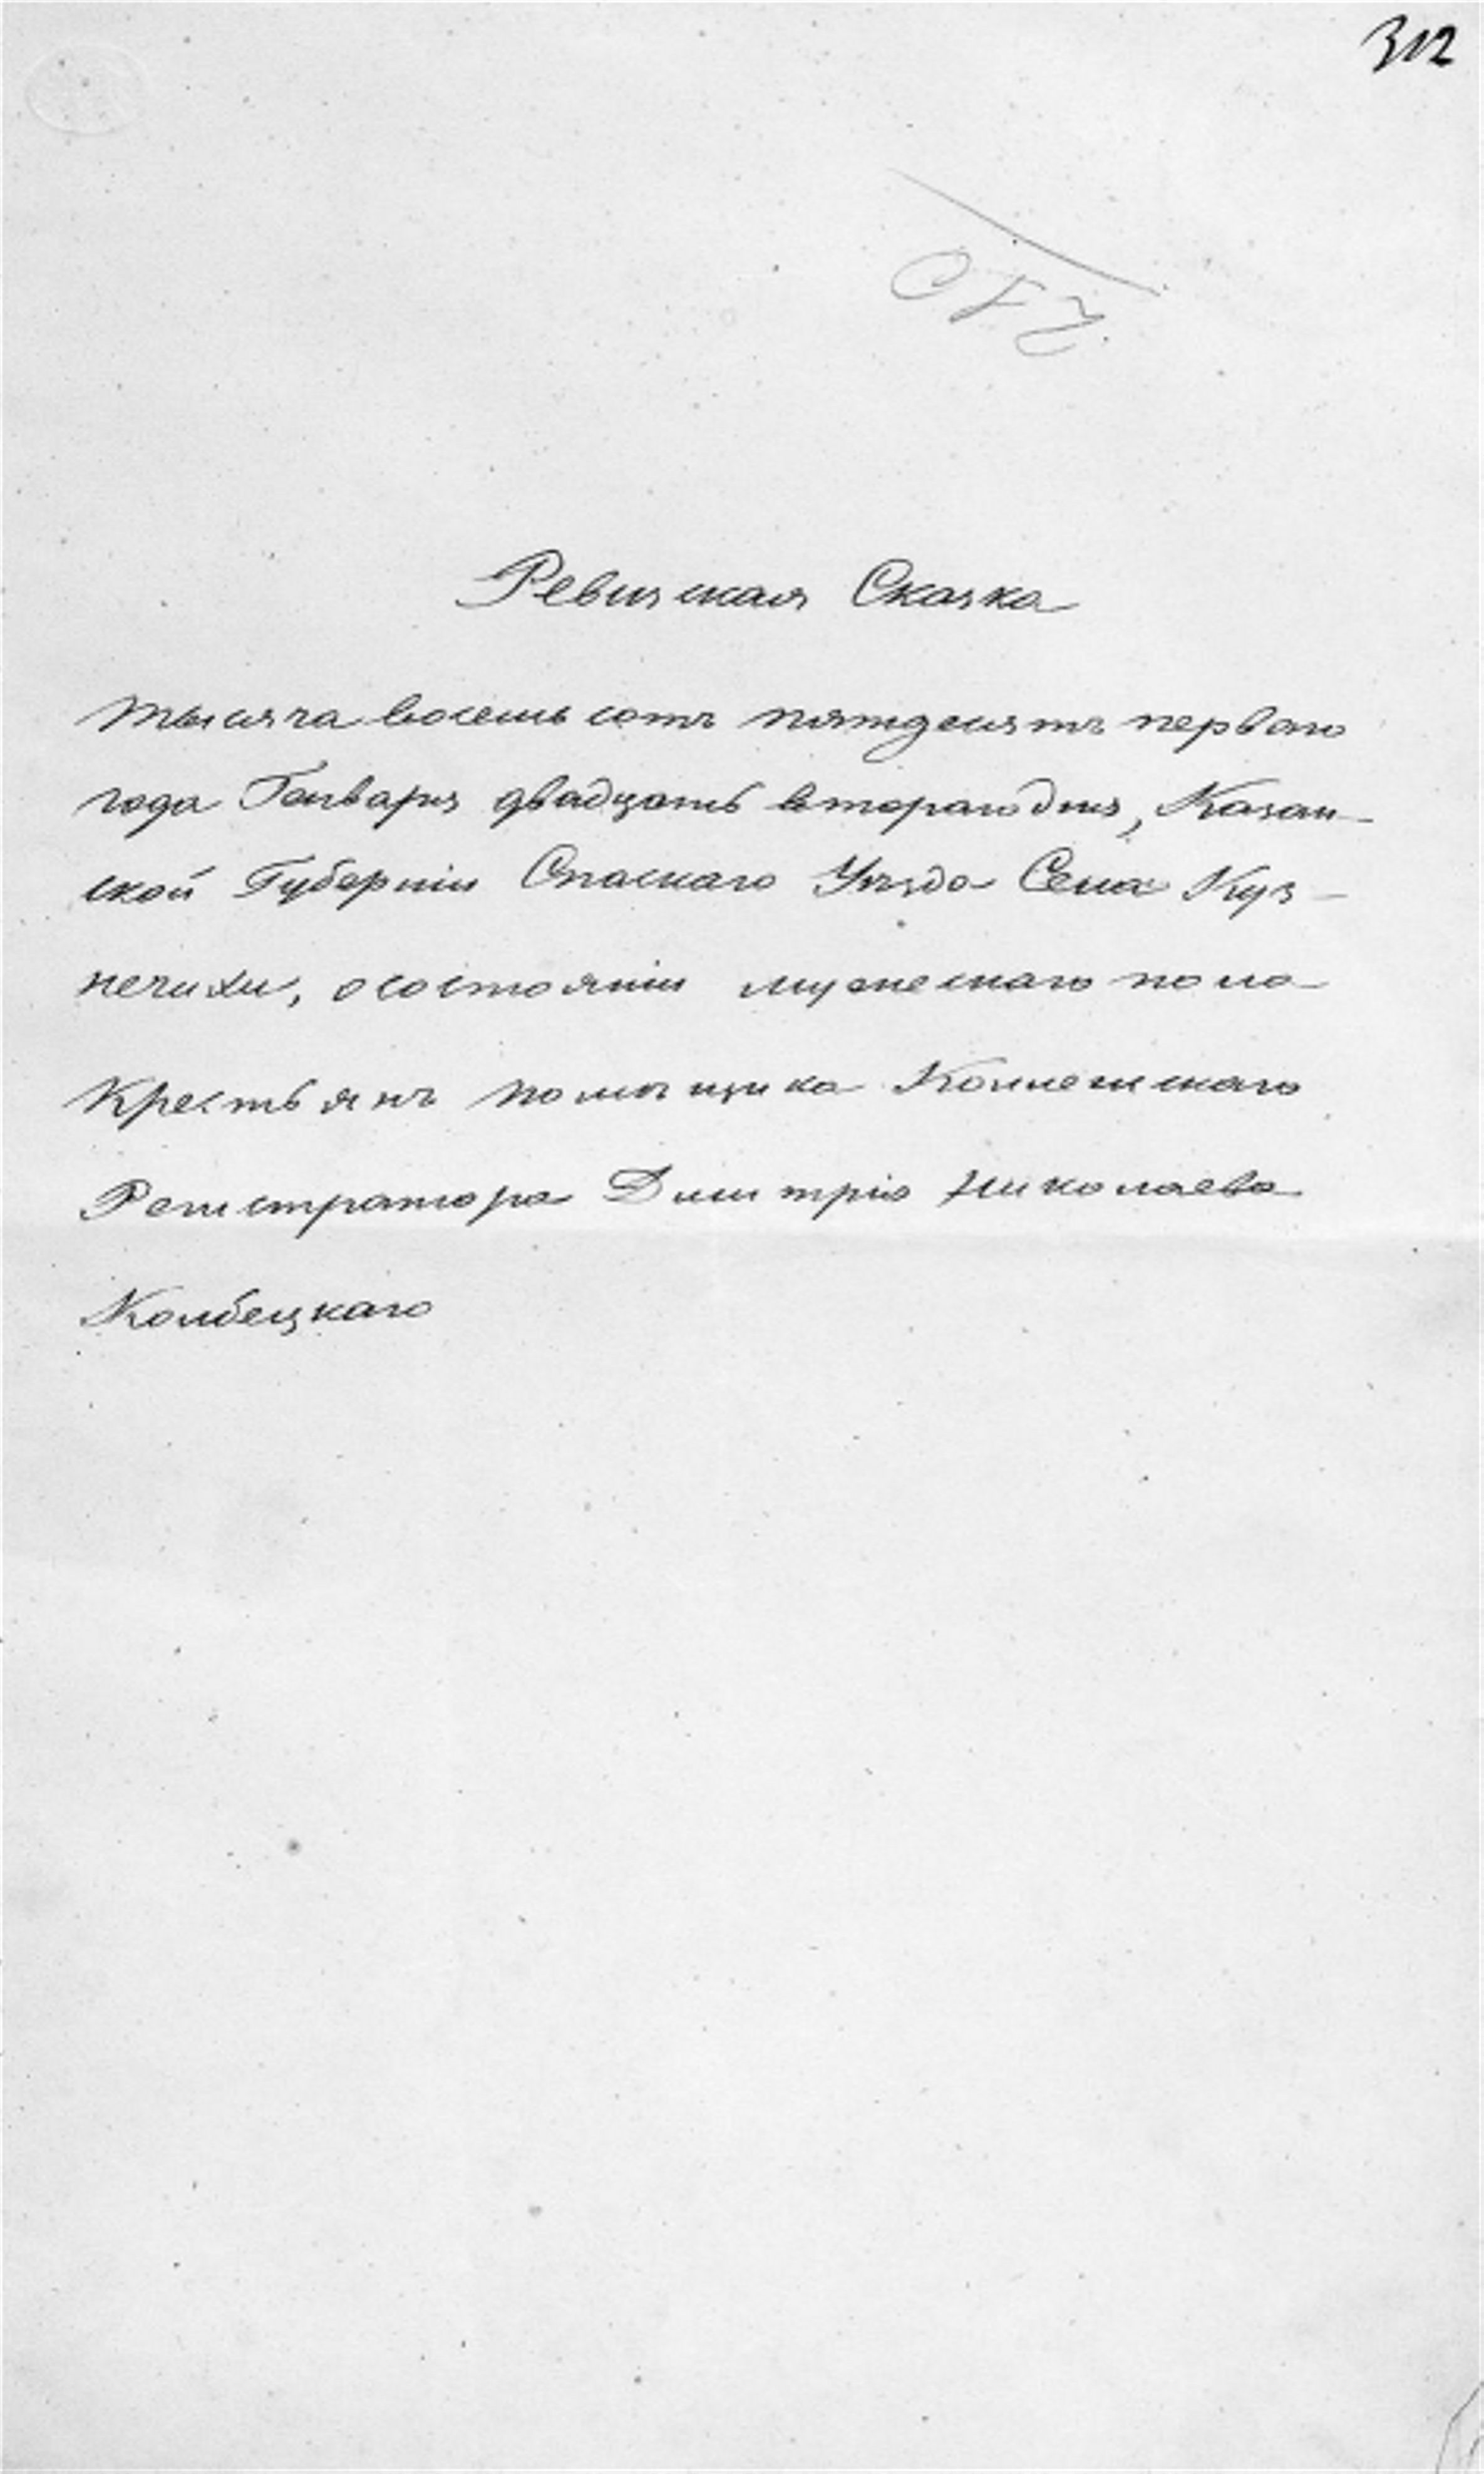 312
Ревизская Сказка
тысяча восемь сотъ пятдесятъ перваго
года Генваря двадцать втораго дня, Казан-
ской Губерніи Спаскаго Уѣзда Села Куз-
нечихи, о состояніи мужескаго пола
Крестьянъ помѣщика Коллежскаго
Регистратора Дмитрія Николаева
Колбецкаго